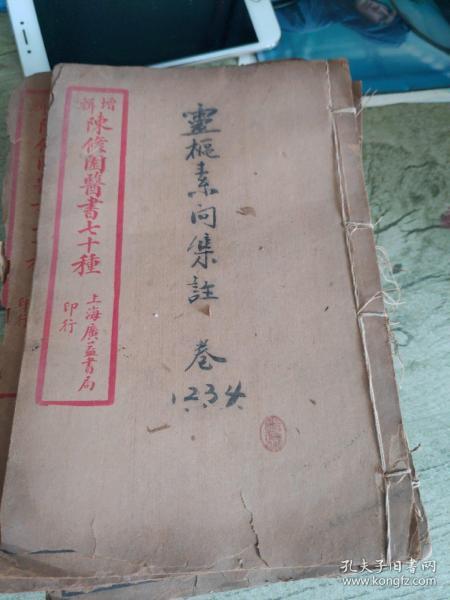 增輯
陳修園醫書七十種
上海廣益書局
印行
靈樞素问集註
卷
1.2.3.4
印行
孔夫子旧书网
www.kongfz.com